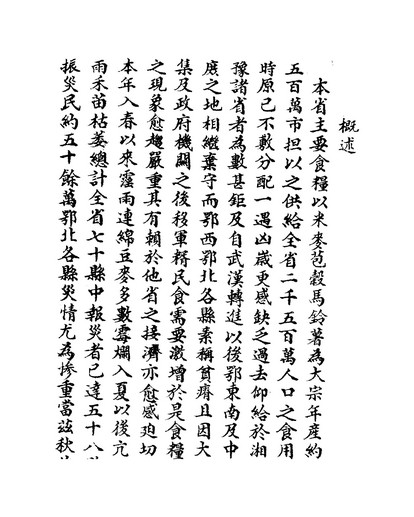 概述
本省主要食糧以米麥苞穀馬鈴薯為大宗年産約
五百萬市担以之供給全省二千五百萬人口之食用
時原已不敷分配一遇凶歲更感缺乏過去仰給於湘
豫諸省者為數甚鉅及自武漢轉進以後鄂東南及中
廣之地相繼棄守而鄂西鄂北各縣素稱貧瘠且因大
集及政府機關之後移軍糈民食需要激增於是食糧
之現象愈趨嚴重其有賴於他省之接濟亦愈感迫切
本年入春以來霪雨連綿豆麥多數霉爛入夏以後亢
雨禾苗枯萎總計全省七十縣中報災者已達五十八
振災民約五十餘萬鄂北各縣災情尤為慘重當茲秋